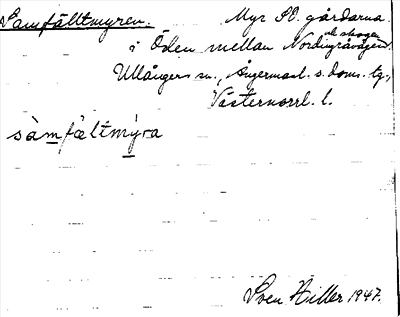 Samfälltmyren. Myr SV. gårdarna
i Öden mellan Nordingråvägen
och skogen
Ullångers sn., Ångermanl. s. doms. tg.,
Västernorrl. l.
sàmfältmýra
Sven Hiller 1947.